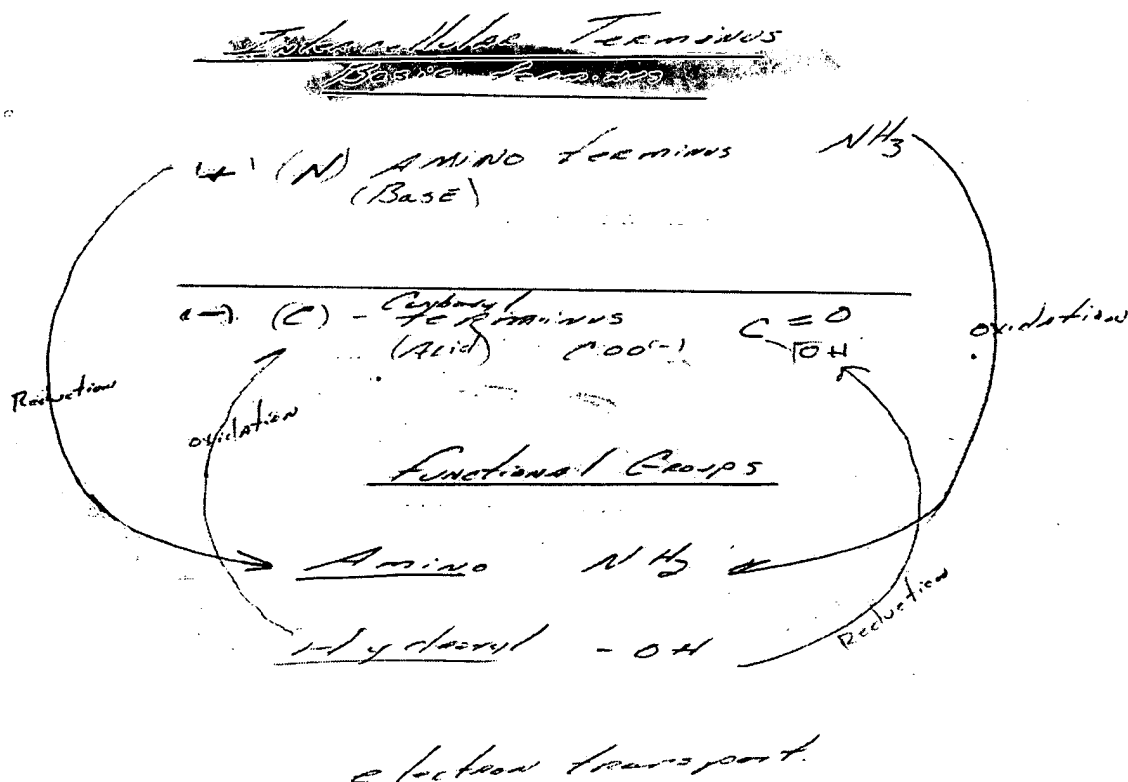 Intercellular Terminus
Basic terminus
(+) (N) Amino terminus NH3
(Base)
(-) (C) - Carboxyl terminus C=O
(Acid) COO(-) OH
oxidation
Reduction
oxidation
Functional Groups
Amino NH2
Reduction
Hydroxyl - OH
electron transport.